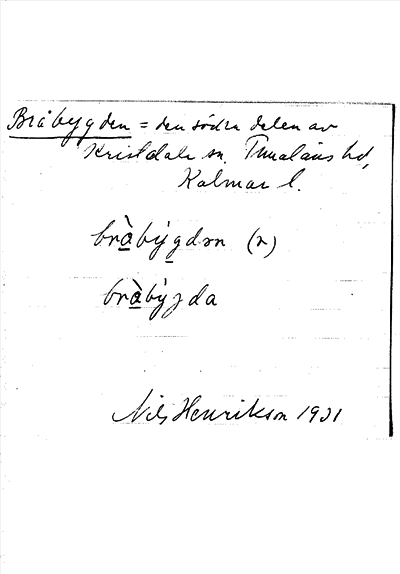 Bråbygden = den södra delen av
Kristdala sn. Tunaläns hd,
Kalmar l.
bràbýgdən (n)
bràbýʒda
Nils Henrikson 1931